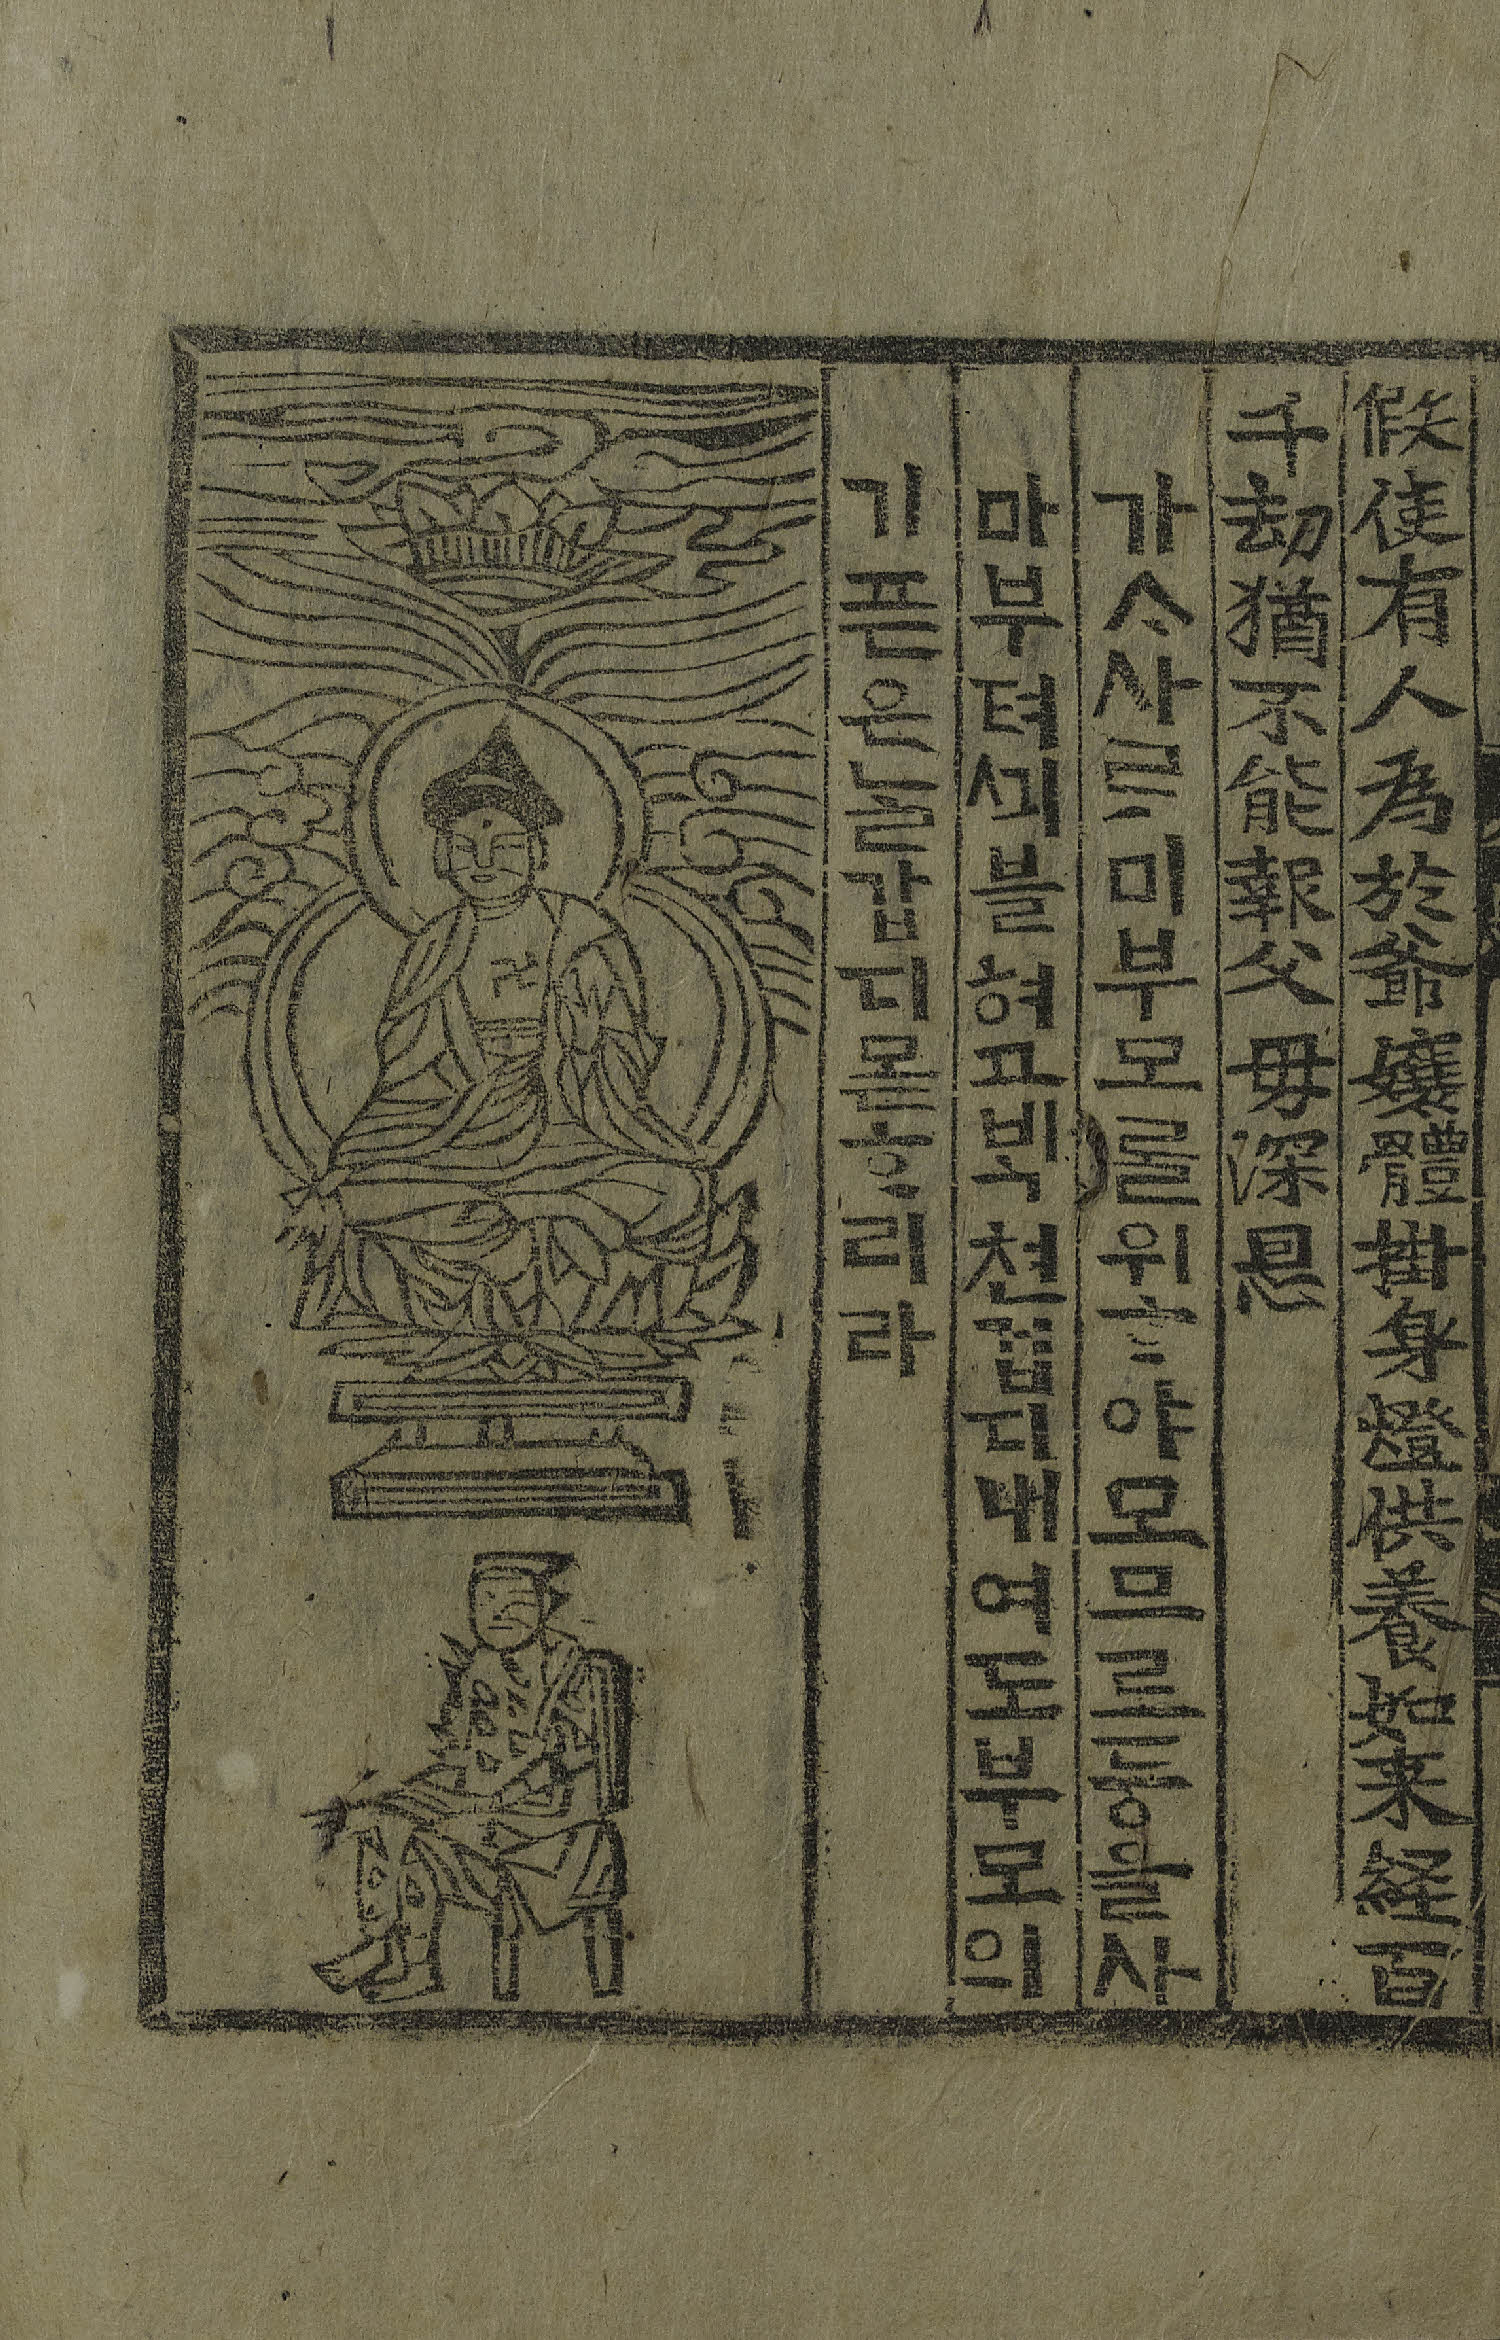 假使有人為於爺孃體掛身燈供養如来経百
千劫猶不能報父母深恩
가ᄉᆞ사ᄅᆞ미부모롤위ᄒᆞ야모므르등을사
마부텨ᄭᅴ블혀고빅쳔겁디내여도부모의
기픈은늘갑디몯ᄒᆞ리라